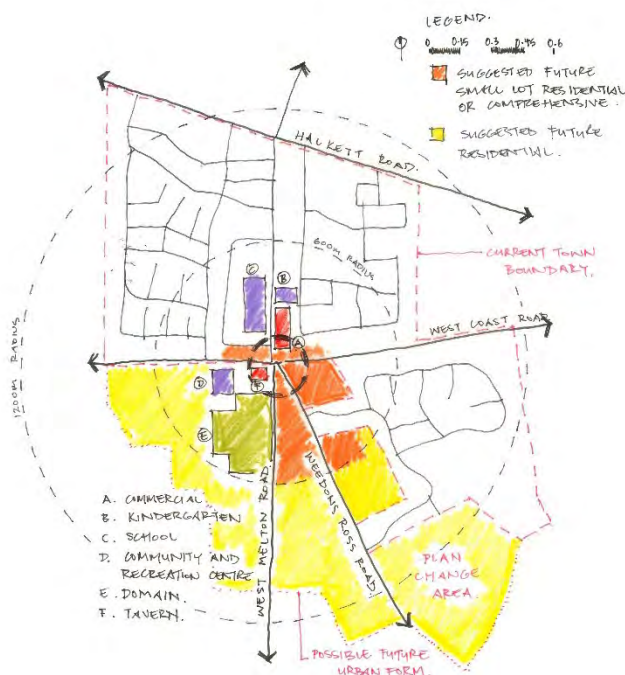 LEGEND.
0 0.15 0.3 0.45 0.6
SUGGESTED FUTURE
SMALL LOT RESIDENTIAL
OR COMPREHENSIVE.
SUGGESTED FUTURE
RESIDENTIAL.
HACKETT ROAD.
600M RADIUS
CURRENT TOWN
BOUNDARY.
WEST COAST ROAD
1200M RADIUS
C
B
A
D
F
E
A. COMMERCIAL
B. KINDERGARTEN
C. SCHOOL
D. COMMUNITY AND
RECREATION CENTRE
E. DOMAIN.
F. TAVERN.
WEST MELTON ROAD
WEEDONS ROSS ROAD.
PLAN
CHANGE
AREA
POSSIBLE FUTURE
URBAN FORM.